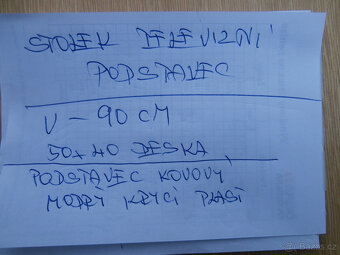 STOLEK TELEVIZNÍ
PODSTAVEC
V - 90 CM
50x40 DESKA
PODSTAVEC KOVOVÝ
MODRÝ KRYCÍ PLAST